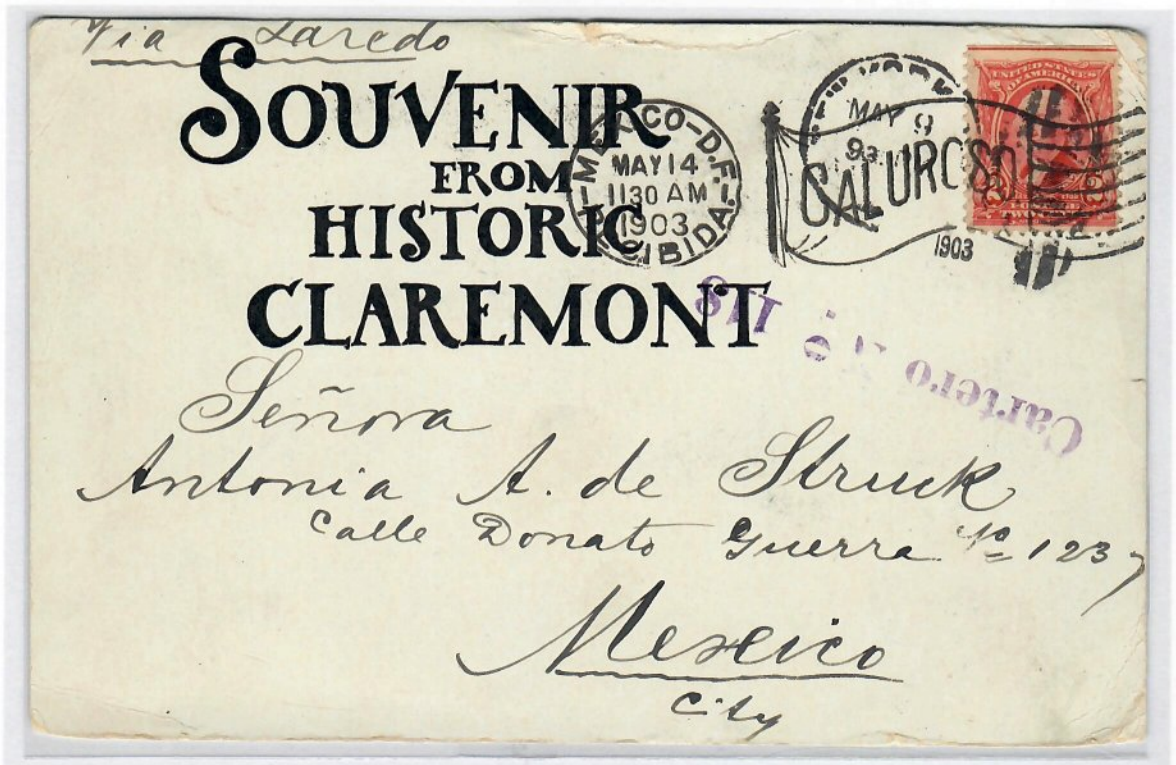 Via Laredo
SOUVENIR
FROM
HISTORIC
CLAREMONT
MEXICO-D.F.
MAY 14
11 30 AM
1903
RECIBIDA.
YORK
MAY 9
1903
UNITED STATES
OF AMERICA
2
TWO
Cartero No. 118
Señora
Antonia A. de Struck
Calle Donato Guerra No 123,
Mexico
City